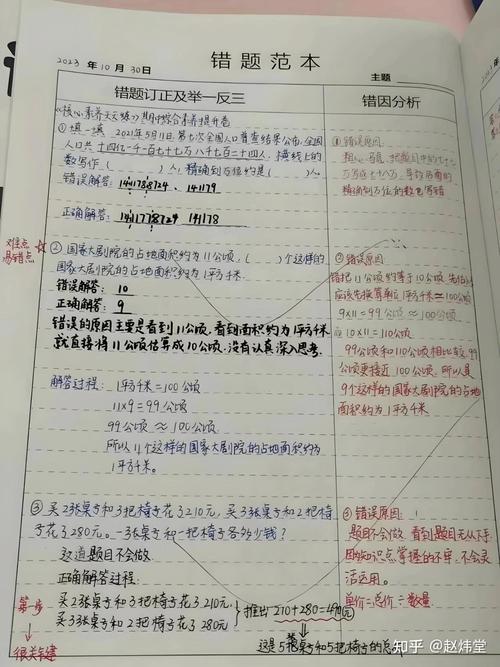 错题范本
2023 年 10 月 30 日
主题
错题订正及举一反三
错因分析
《核心素养天天练》期中综合素养提升卷
① 填一填 2021年5月11日第七次全国人口普查结果公布,全国
人口共十四亿一千一百七十七万八千七百二十四人,横线上的
数写作( )人,精确到万位约是( )人。
错误解答: 1411788724、141179
正确解答: 1411778724 141178
① 错误原因:
粗心马虎,把题目中的七十七
万写成七十八万,导致后面的
精确到万位的数也写错
难点
易错点
② 国家大剧院的占地面积约为11公顷,( )个这样的
国家大剧院的占地面积约为1平方千米。
错误解答: 10
正确解答: 9
错误的原因主要是看到11公顷,看到面积约为1平方千米
就直接将11公顷估算成10公顷,没有认真深入思考.
解答过程: 1平方千米=100公顷
11×9=99公顷
99公顷≈100公顷
所以11个这样的国家大剧院的占地面积约为
1平方千米。
② 错误原因:
错把11公顷约等于10公顷,
应该先换算单位1平方千米=100公顷
9×11=99公顷≈100公顷
10×11=110
99公顷和110公顷相比较,99
公顷更接近100公顷,所以是
9个这样的国家大剧院的占地
面积约为1平方千米
③ 买2张桌子和3把椅子花了210元,买3张桌子和2把椅
子花了280元。一张桌子和一把椅子各多少钱?
这道题目不会做
正确解答过程:
第一步
很关键
买2张桌子和3把椅子花了210元
买3张桌子和2把椅子花了280元
推出 210+280=490(元)
这是5张桌子和5把椅子的总价
③ 错误原因:
题目不会做,看到题目无从下手,
因知识点掌握的不牢,不会灵
活运用。
单价=总价÷数量
知乎 @赵炜堂